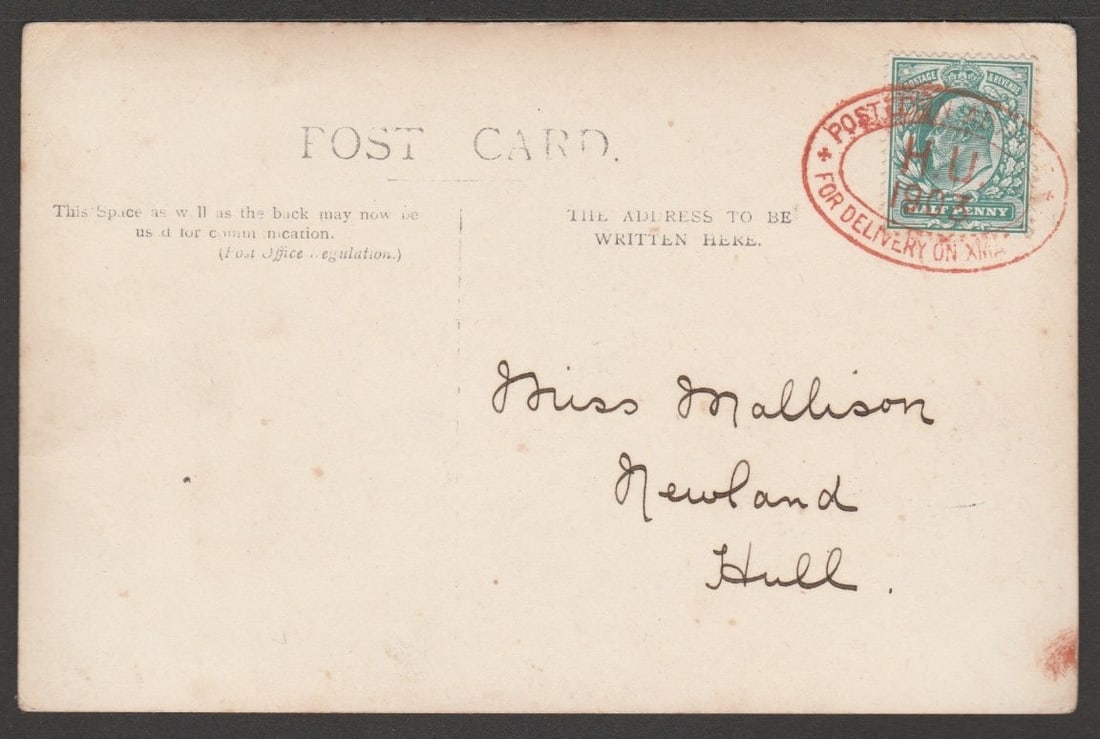 POST CARD.
This Space as w ll as the back may now be
us d for comm nication.
(Post Office egulation.)
THE ADDRESS TO BE
WRITTEN HERE.
POSTAGE & REVENUE
HALF PENNY
POSTED
H.U.
1903
FOR DELIVERY ON XMA
Miss Mallison
Newland
Hull.